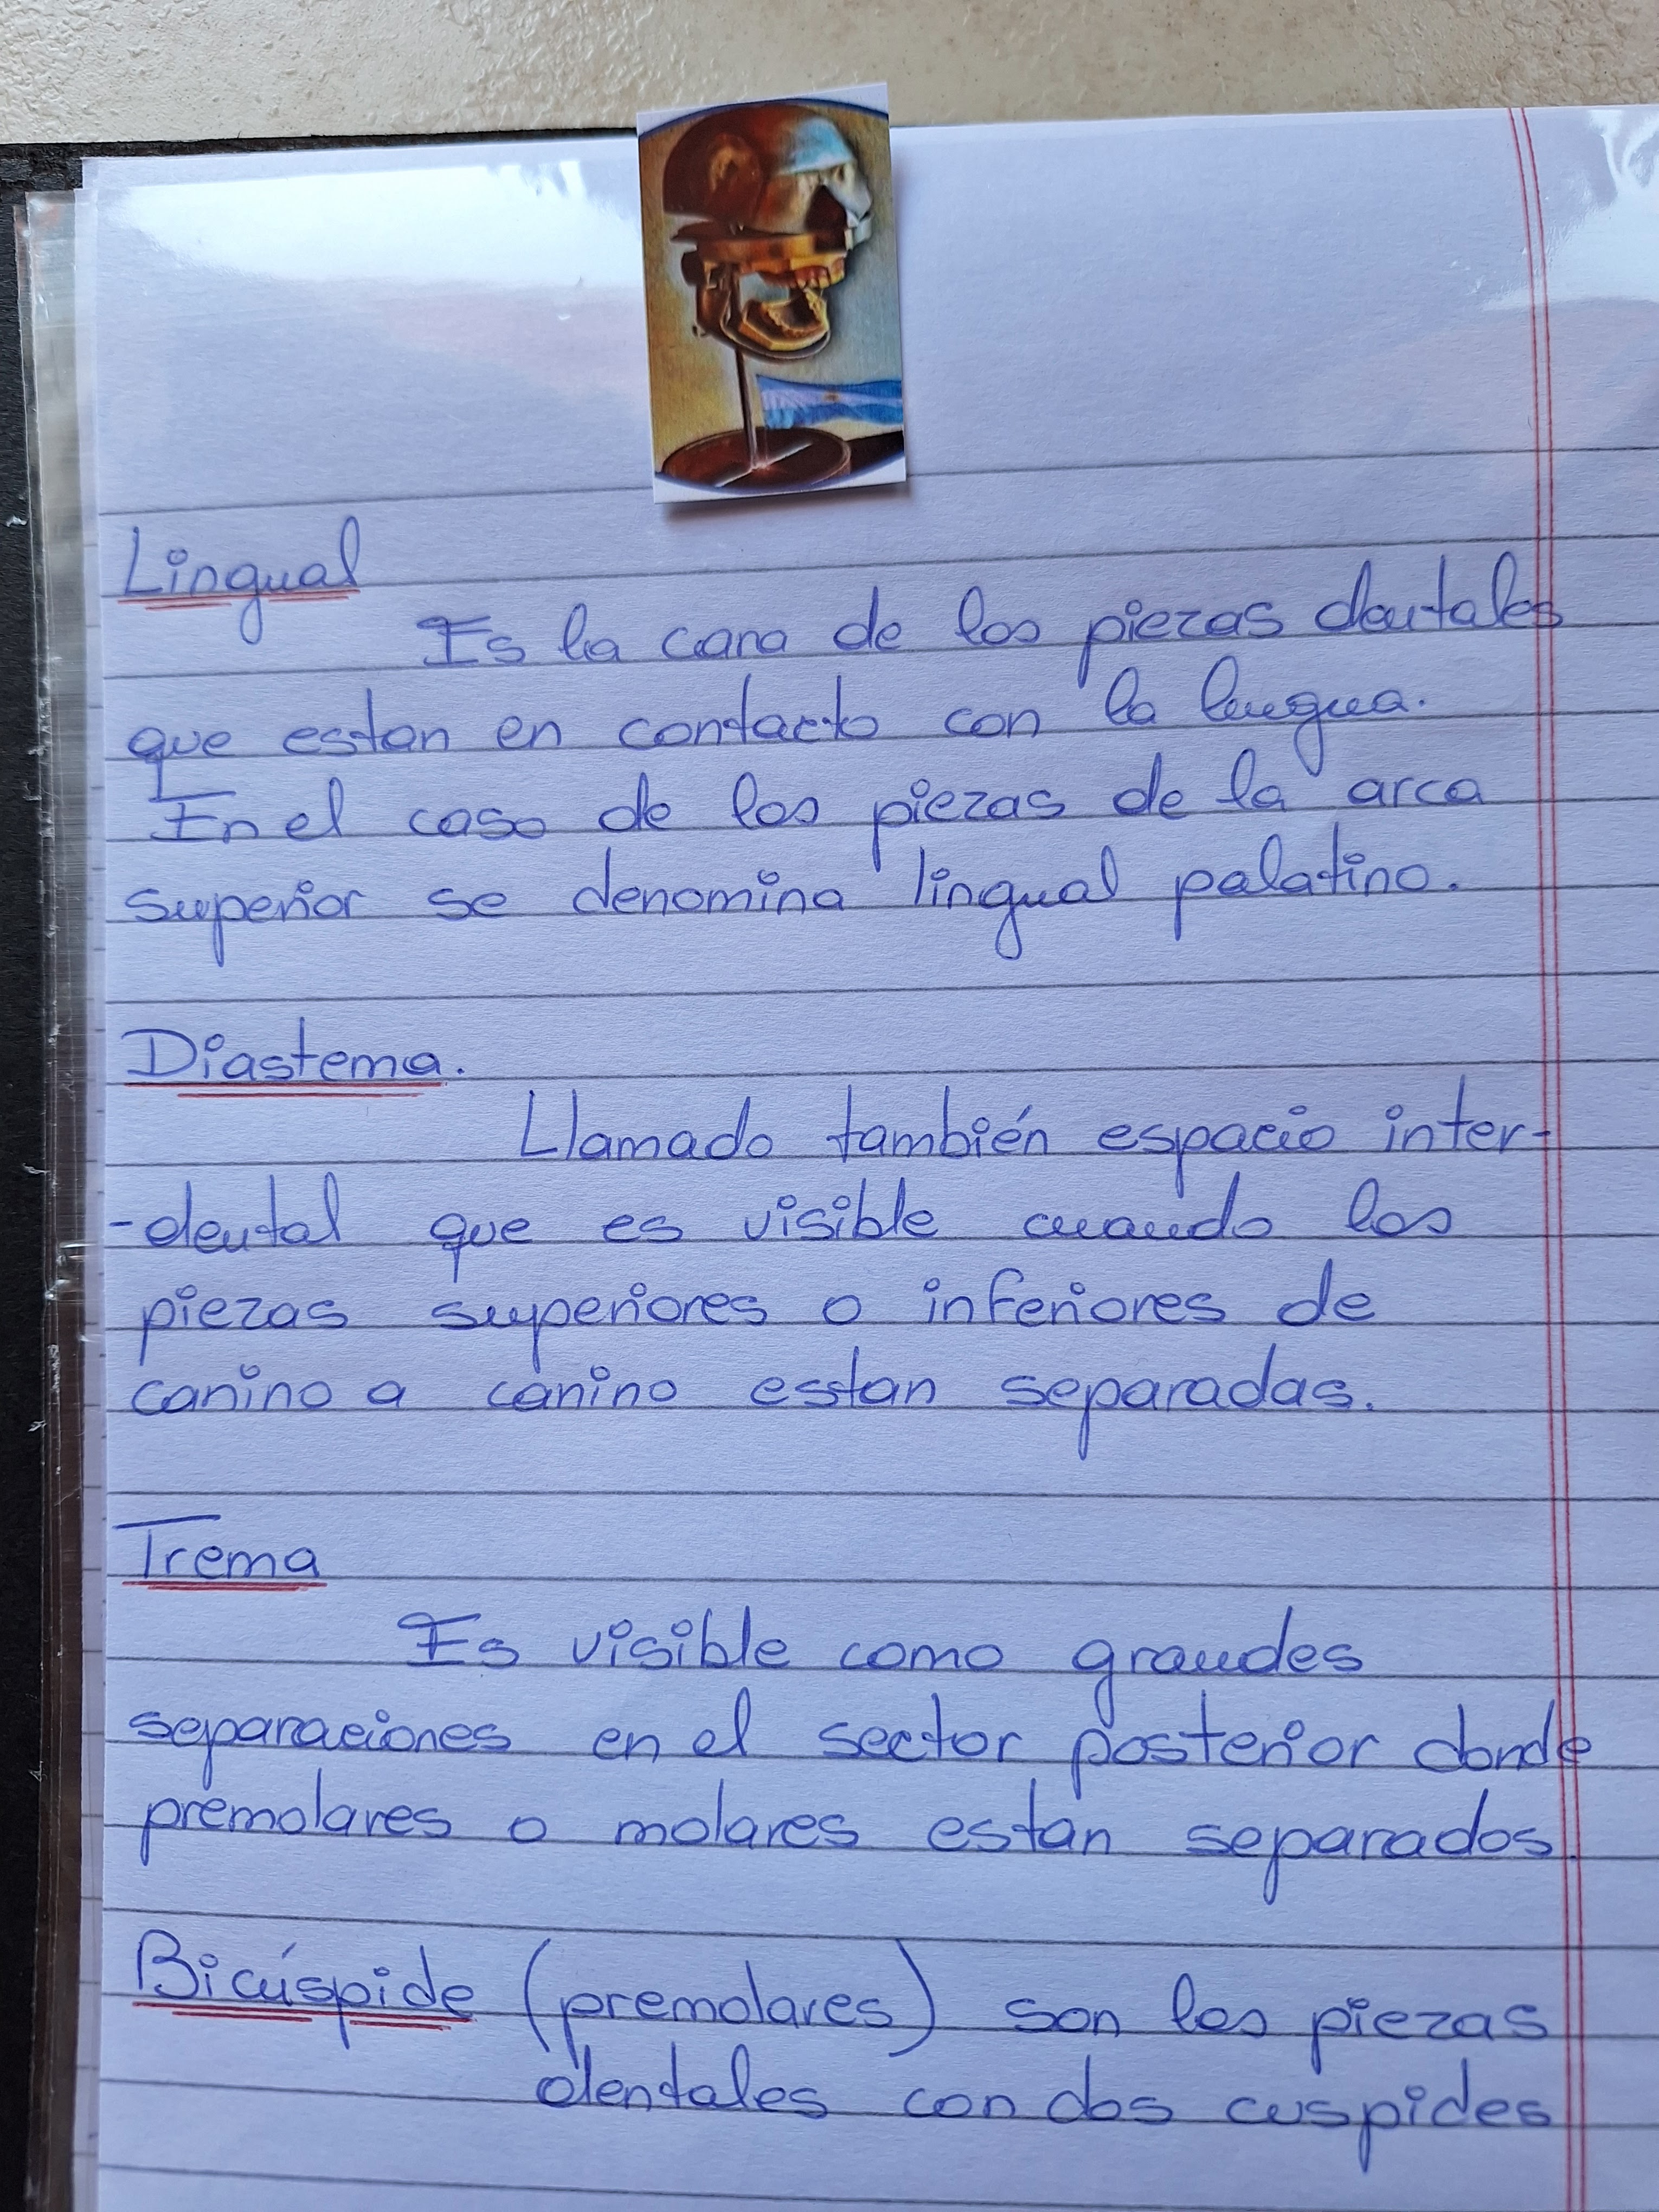 Lingual
Es la cara de las piezas dentales
que estan en contacto con la lengua.
En el caso de las piezas de la arca
superior se denomina lingual palatino.
Diastema.
Llamado también espacio inter-
-dental que es visible cuando las
piezas superiores o inferiores de
canino a canino estan separadas.
Trema
Es visible como grandes
separaciones en el sector posterior donde
premolares o molares estan separados.
Bicúspide (premolares) son las piezas
dentales con dos cuspides